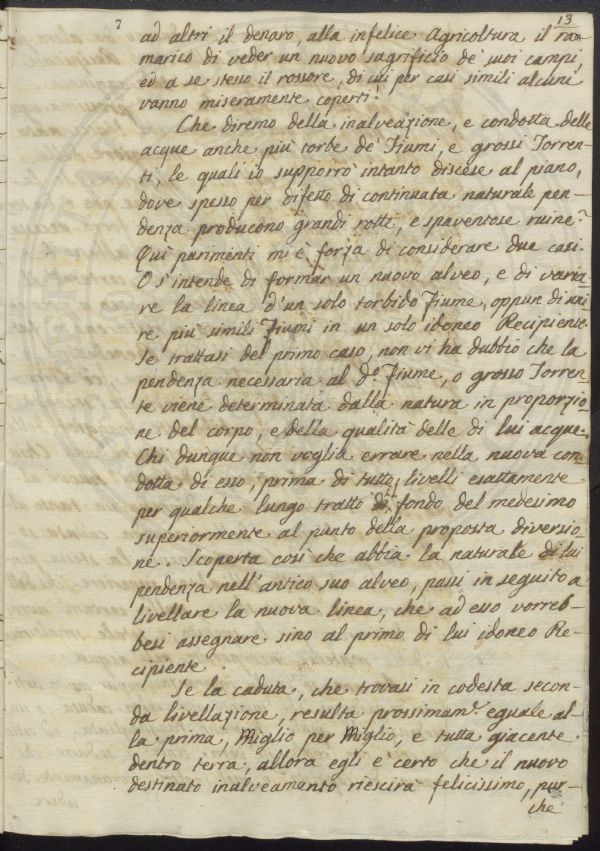 7
13
ad altri il denaro, alla infelice Agricoltura il ram-
marico di veder un nuovo sagrificio de' suoi campi,
ed a se stesso il rossore, di cui per casi simili alcuni
vanno miseramente coperti!
Che diremo della inalveazione, e condotta delle
acque anche più torbe de' Fiumi, e grossi Torren-
ti, le quali io supporrò intanto discese al piano,
dove spesso per difetto di continuata naturale pen-
denza producono grandi rotte, e spaventose ruine?
Quì parimenti mi è forza di considerare due casi.
O s'intende di formar un nuovo alveo, e di varia-
re la linea d'un solo torbido Fiume, oppur di uni-
re più simili Fiumi in un solo idoneo Recipiente.
Se trattasi del primo caso, non vi ha dubbio che la
pendenza necessaria al d.o Fiume, o grosso Torren-
te viene determinata dalla natura in proporzio-
ne del corpo, e della qualità delle di lui acque.
Chi dunque non voglia errare nella nuova con-
dotta di esso, prima di tutto livelli esattamente
per qualche lungo tratto fondo del medesimo
superiormente al punto della proposta diversio-
ne. Scoperta così che abbia la naturale di lui
pendenza nell'antico suo alveo, passi in seguito a
livellare la nuova linea, che ad esso vorreb-
besi assegnare sino al primo di lui idoneo Re-
cipiente.
Se la caduta, che trovasi in codesta secon-
da livellazione, resulta prossimam.e eguale al-
la prima, Miglio per Miglio, e tutta giacente
dentro terra, allora egli è certo che il nuovo
destinato inalveamento riescirà felicissimo, pur-
che